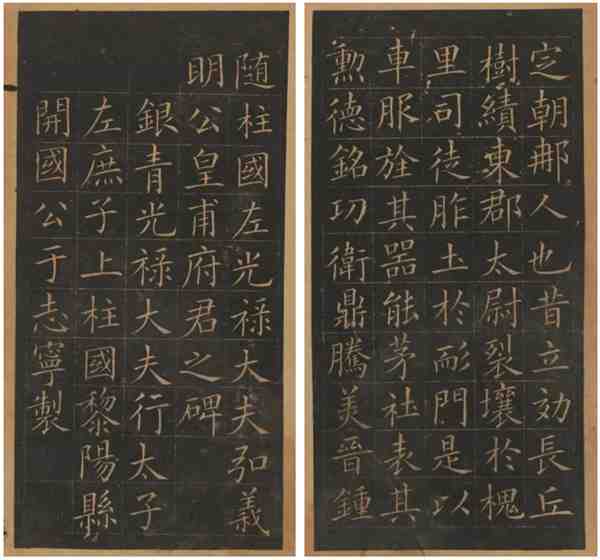 随柱國左光禄大夫弘義
明公皇甫府君之碑
銀青光禄大夫行太子
左庶子上柱國黎陽縣
開國公于志寧製
定朝那人也昔立効長丘
樹績東郡太尉裂壤於槐
里司徒胙土於耏門是以
車服旌其器能茅社表其
勲德銘功衛鼎騰美晉鍾